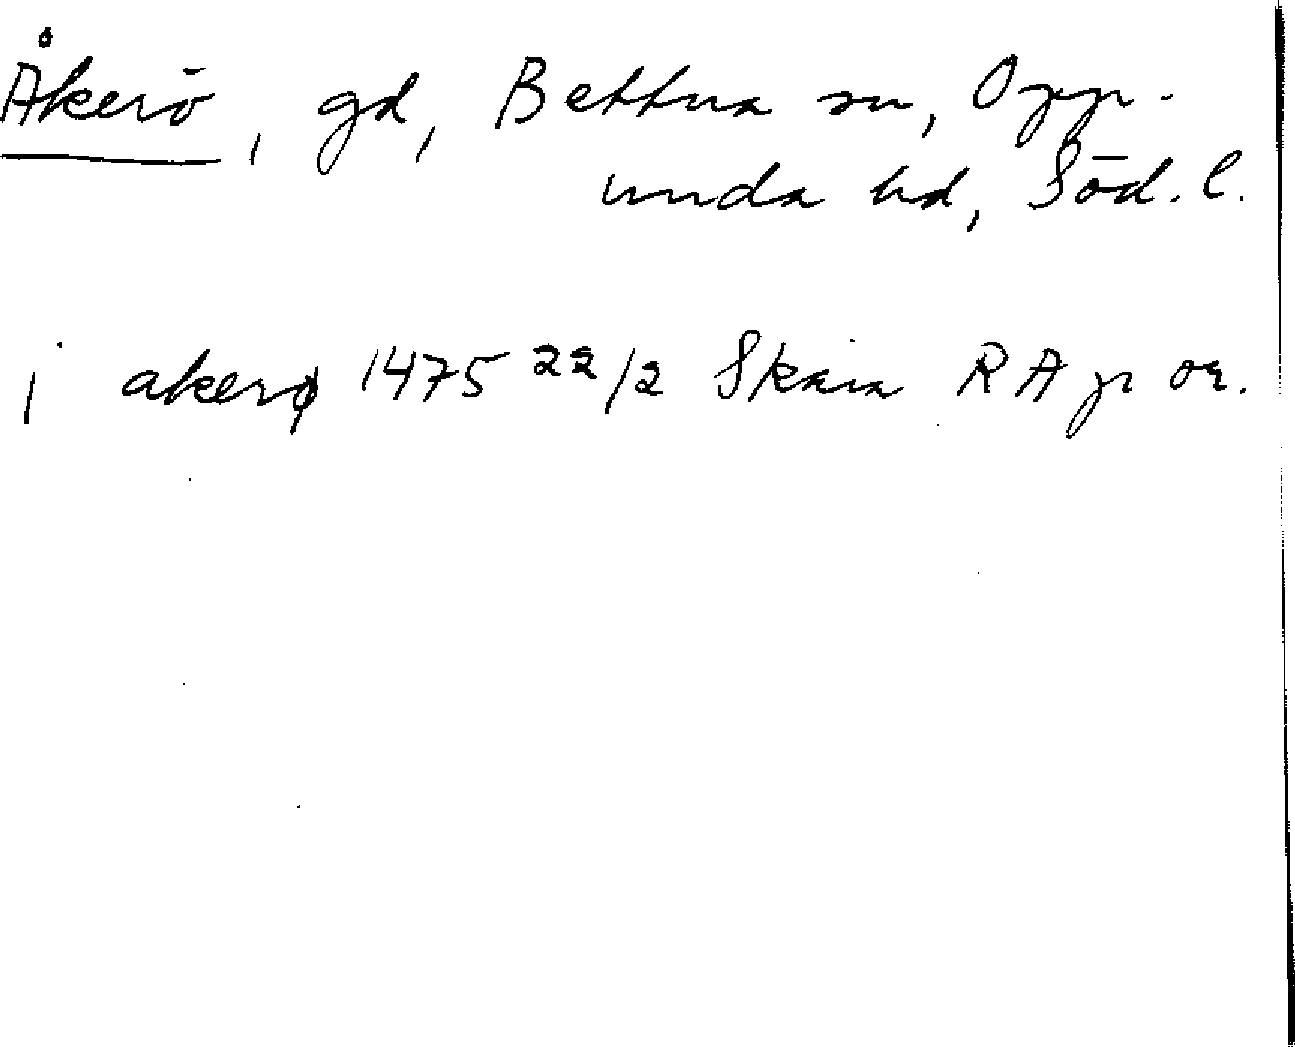 Åkerö, gd, Bettna sn, Opp-
unda hd, Söd. l.
j akerø 1475 22/2 Skara RAp or.